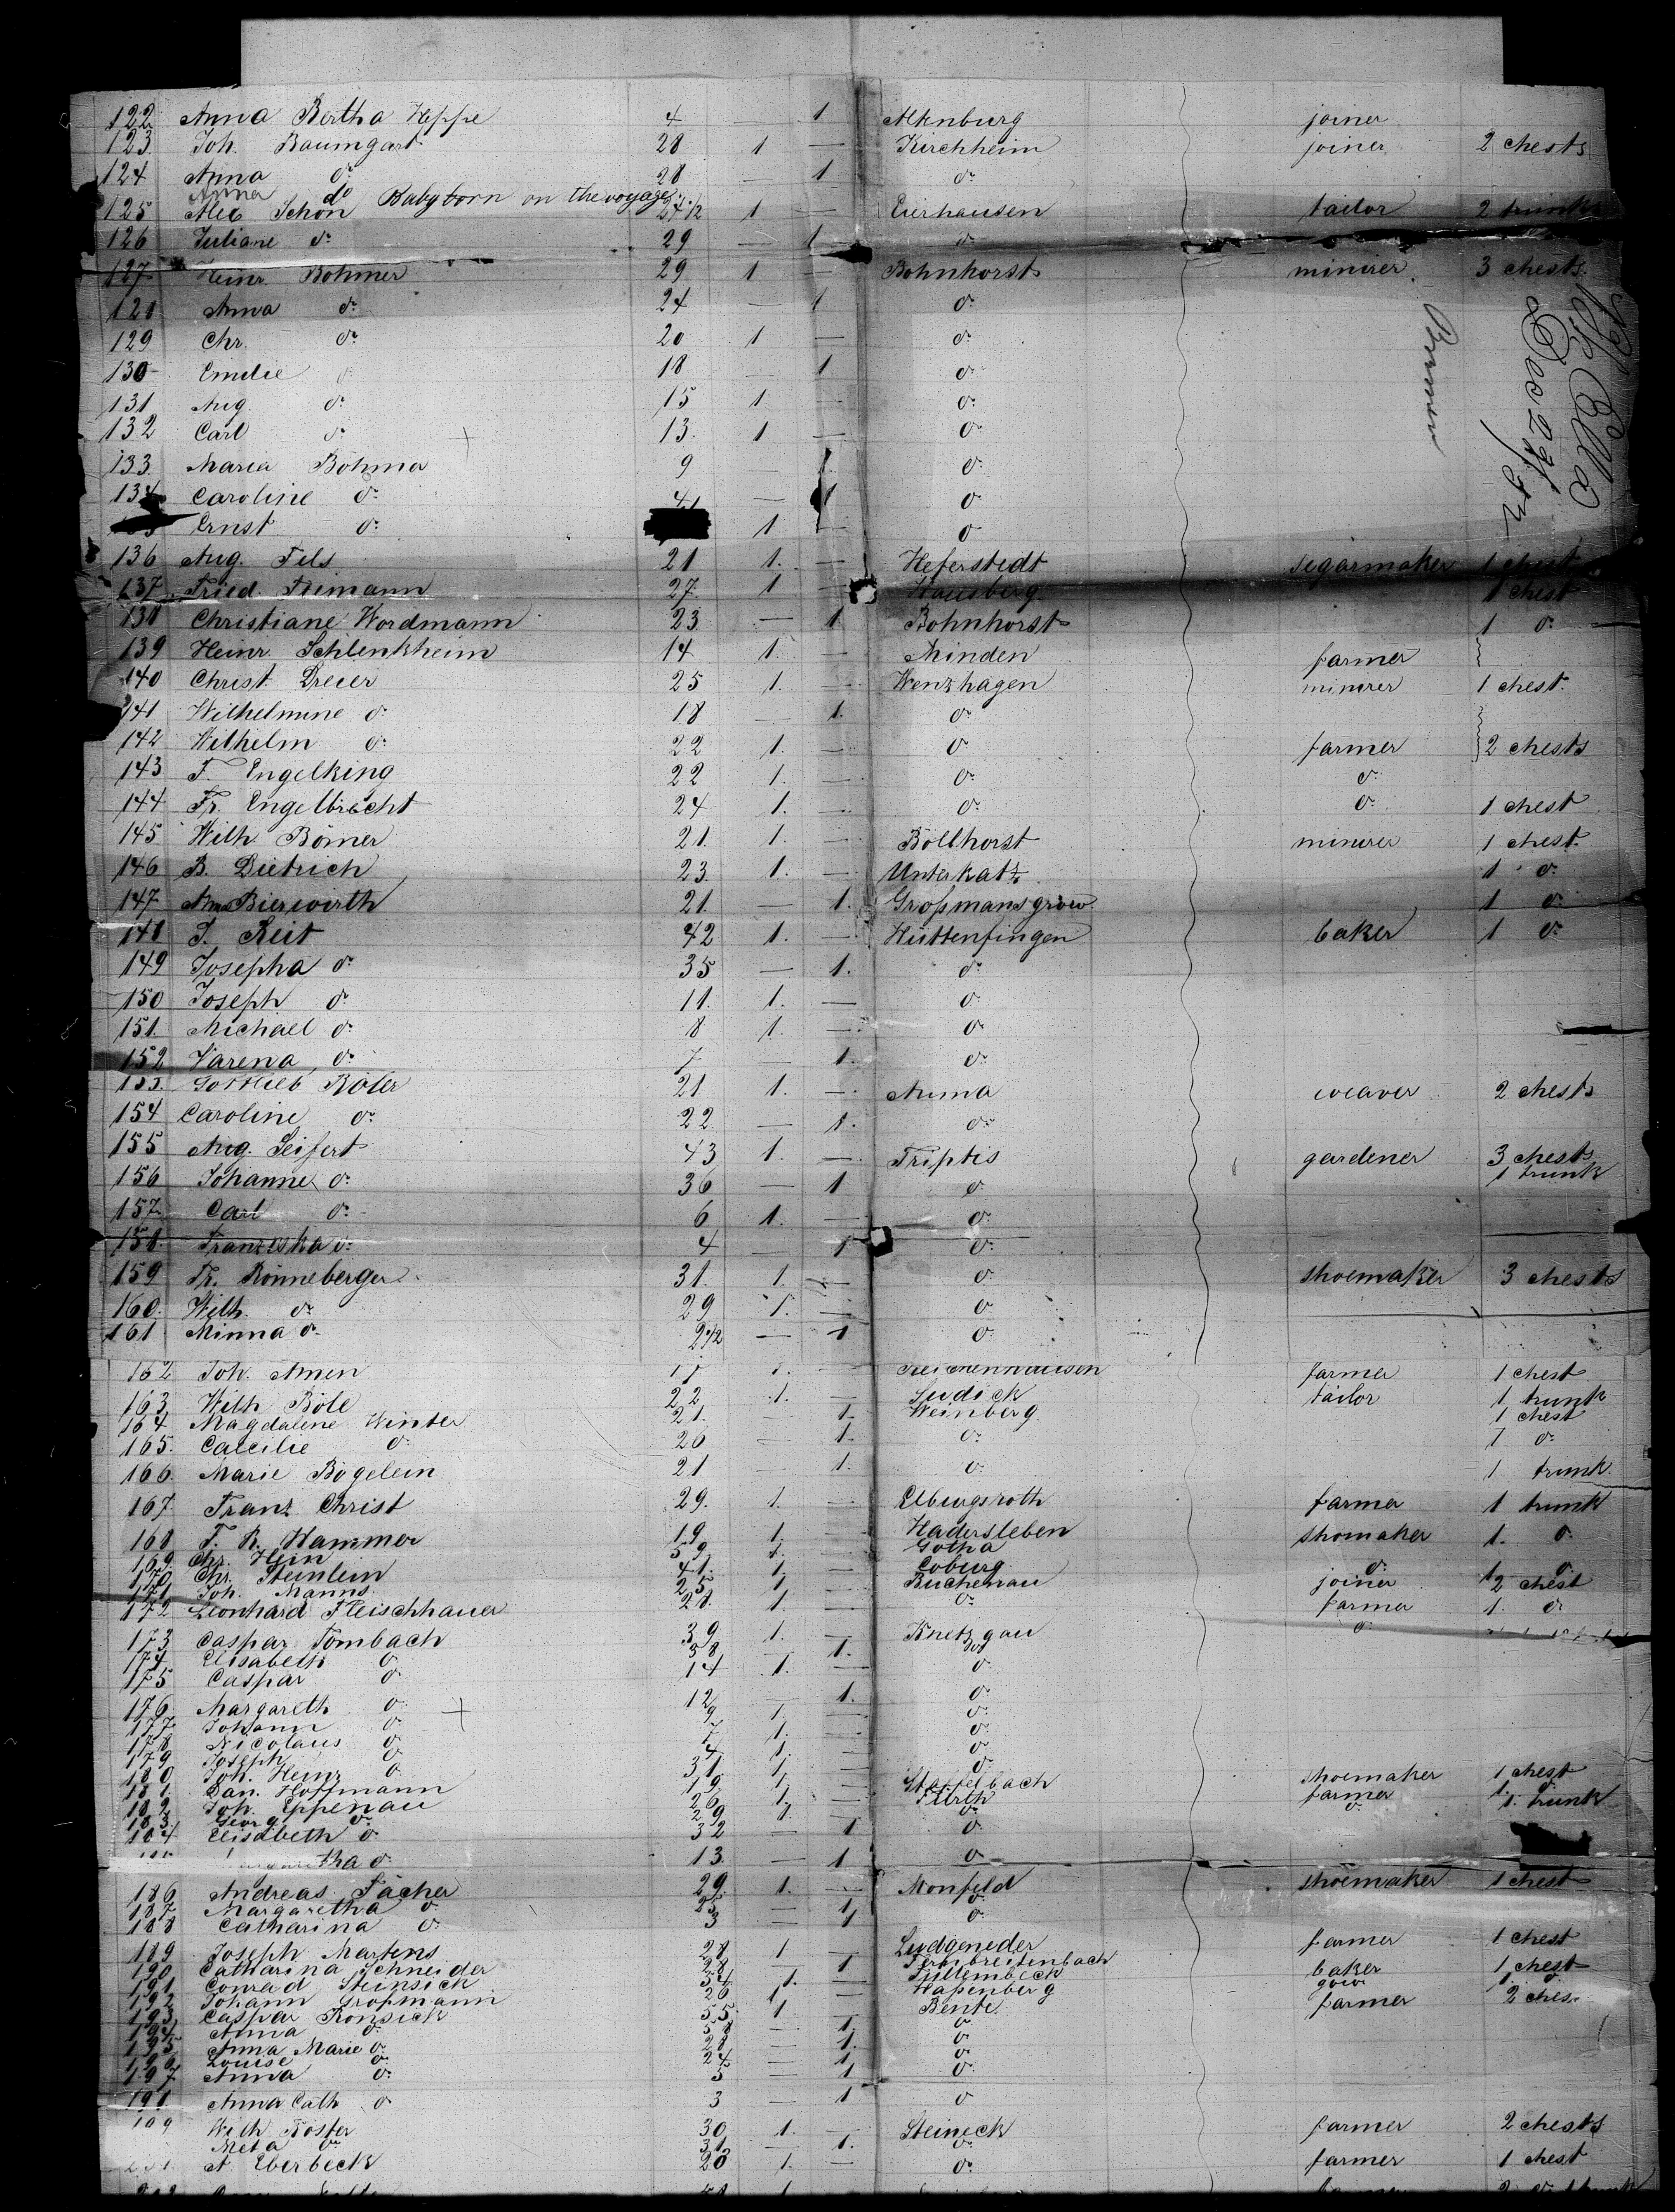 122 Anna Bertha Heppe 4 — 1 Altenburg joiner
123 Joh. Baumgart 28 1 — Kirchheim joiner 2 chests
124 Anna do 28 — 1 do
Anna do Baby born on the voyage
125 Alex Schön 27 1 — Eierhausen tailor 2 trunks
126 Juliane do 29 — 1 do
127 Heinr. Böhmer 29 1 — Bohnhorst minirer 3 chests
128 Anna do 24 — 1 do
129 Chr. do 20 1 — do
130 Emilie do 18 — 1 do
131 Aug. do 15 1 — do
132 Carl do 13 1 — do
133 Maria Böhmer 9 — 1 do
134 Caroline do 4 — 1 do
Ernst do 1 — do
136 Aug. Fels 21 1 — Heferstedt segarmaker 1 chest
137 Fried. Tiemann 27 1 — Hausberg 1 chest
138 Christiane Wordmann 23 — 1 Bohnhorst 1 do
139 Heinr. Schlenkheim 14 1 — Minden farmer
140 Christ. Dreier 25 1 — Wenzhagen minirer 1 chest
141 Wilhelmine do 18 — 1 do
142 Wilhelm do 22 1 — do farmer 2 chests
143 F. Engelking 22 1 — do do
144 Fr. Engelbrecht 24 1 — do do 1 chest
145 Wilh. Börner 21 1 — Böllhorst minirer 1 chest
146 B. Dietrich 23 1 — Unterkatz 1 do
147 Anna Bierwirth 21 — 1 Großmansgrow 1 do
148 S. Reit 42 1 — Hüttenfingen baker 1 do
149 Josepha do 35 — 1 do
150 Joseph do 11 1 — do
151 Michael do 8 1 — do
152 Varena do 7 — 1 do
153 Gottlieb Röler 21 1 — Auma weaver 2 chests
154 Caroline do 22 — 1 do
155 Aug. Seifert 43 1 — Triptis gardener 3 chests 1 trunk
156 Johanne do 36 — 1 do
157 Carl do 6 1 — do
158 Franziska do 4 — 1 do
159 Fr. Rönneberger 31 1 — do shoemaker 3 chests
160 Wilh. do 29 1 — do
161 Minna do 2 1/2 — 1 do
162 Joh. Amen 1 — farmer 1 chest
163 Wilh Böle 22 1 — Ludick tailor 1 trunk
164 Magdalene Winter 21 — 1 Weinberg 1 chest
165 Caecilie do 26 — 1 do 1 do
166 Marie Bögelein 21 — 1 do 1 trunk
167 Franz Christ 29 1 — Elburgsroth farmer 1 trunk
168 F. R. Hammer 19 1 — Hadersleben shomaker 1 do
169 Chr. Hein 59 1 — Gotha
170 Chr. Steinlein 41 1 — Coburg do 1 do
171 Joh. Manns 25 1 — Buchenau joiner 2 chest
172 Leonhard Fleischhauer 28 1 — do farmer 1 do
173 Caspar Tombach 39 1 — Knetzgau do
174 Elisabeth do 38 — 1 do
175 Caspar do 14 1 — do
176 Margareth do 12 — 1 do
177 Johann do 9 1 — do
178 Nicolaus do 7 1 — do
179 Joseph do 4 1 — do
180 Joh. Heinz do 31 1 — do shoemaker 1 chest
181 Dan. Hoffmann 19 1 — Staffelbach farmer 1 do
182 Joh. Eppenau 26 1 — Fürth do 1 trunk
183 Georg do 29 1 — do
184 Elisabeth do 32 — 1 do
do 13 — 1 do
186 Andreas Fächer 29 1 — Monfeld shoemaker 1 chest
187 Margaretha do 25 — 1 do
188 Catharina do 3 — 1 do
189 Joseph Martens 28 1 — Ludgeneder farmer 1 chest
190 Catharina Schneider 28 — 1 Fernbreitenbach baker 1 chest
191 Conrad Steinsick 34 1 — 1 do
192 Johann Großmann 26 1 — Wapenberg farmer 2 ches.
193 Caspar Konsick 55 1 — Bente
194 Anna do 58 — 1 do
195 Anna Marie do 28 — 1 do
196 Louise do 24 — 1 do
197 Anna do 5 — 1 do
198 Anna Cath do 3 — 1 do
199 Wilh Köster 30 1 — Steineck farmer 2 chests
Meta do 31 — 1 do
A. Eberbeck 20 1 — do farmer 1 chest
Bremen
Dec 24